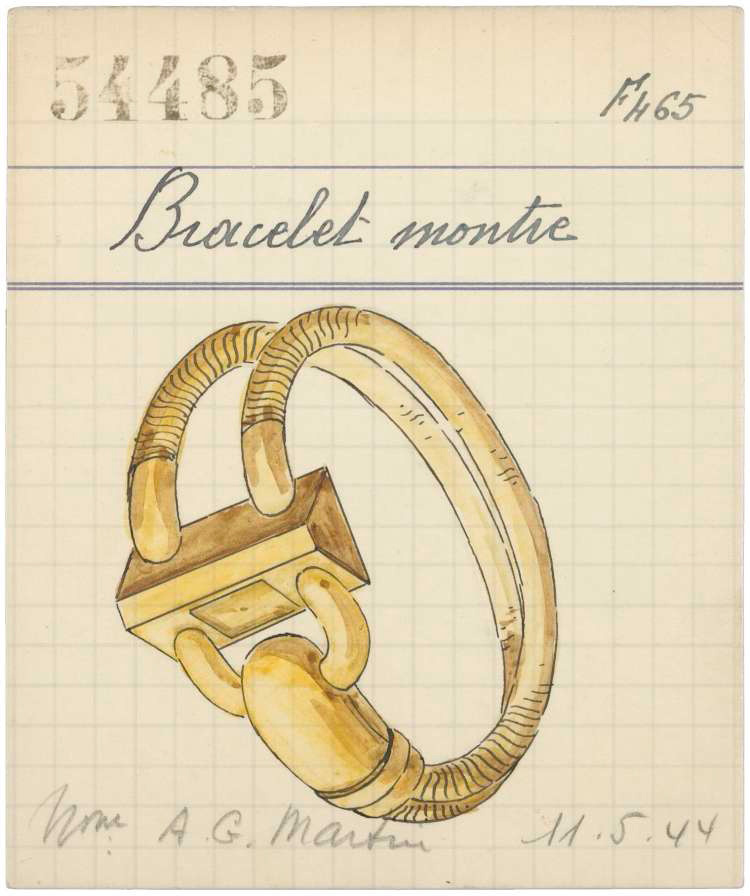 54485
F465
Bracelet montre
A. G. Martin 11.5.44